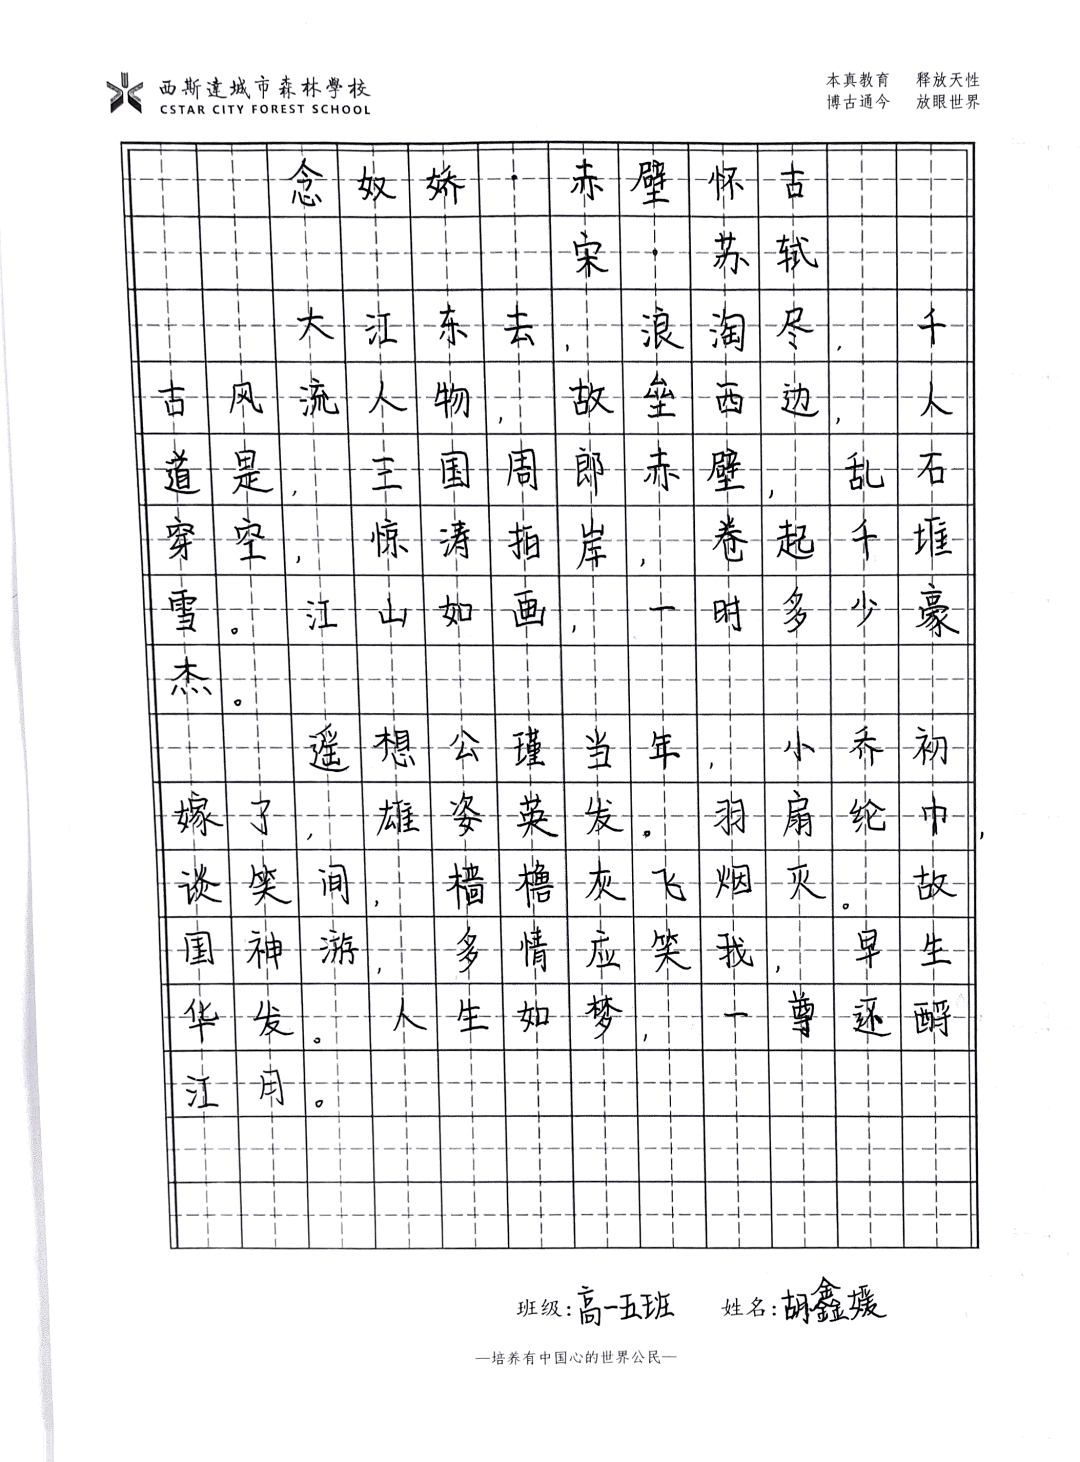 西斯達城市森林學校
CSTAR CITY FOREST SCHOOL
本真教育 释放天性
博古通今 放眼世界
念奴娇·赤壁怀古
宋·苏轼
大江东去,浪淘尽,千
古风流人物,故垒西边,人
道是,三国周郎赤壁,乱石
穿空,惊涛拍岸,卷起千堆
雪。江山如画,一时多少豪
杰。
遥想公瑾当年,小乔初
嫁了,雄姿英发。羽扇纶巾,
谈笑间,樯橹灰飞烟灭。故
国神游,多情应笑我,早生
华发。人生如梦,一尊还酹
江月。
班级:高一五班 姓名:胡鑫媛
—培养有中国心的世界公民—